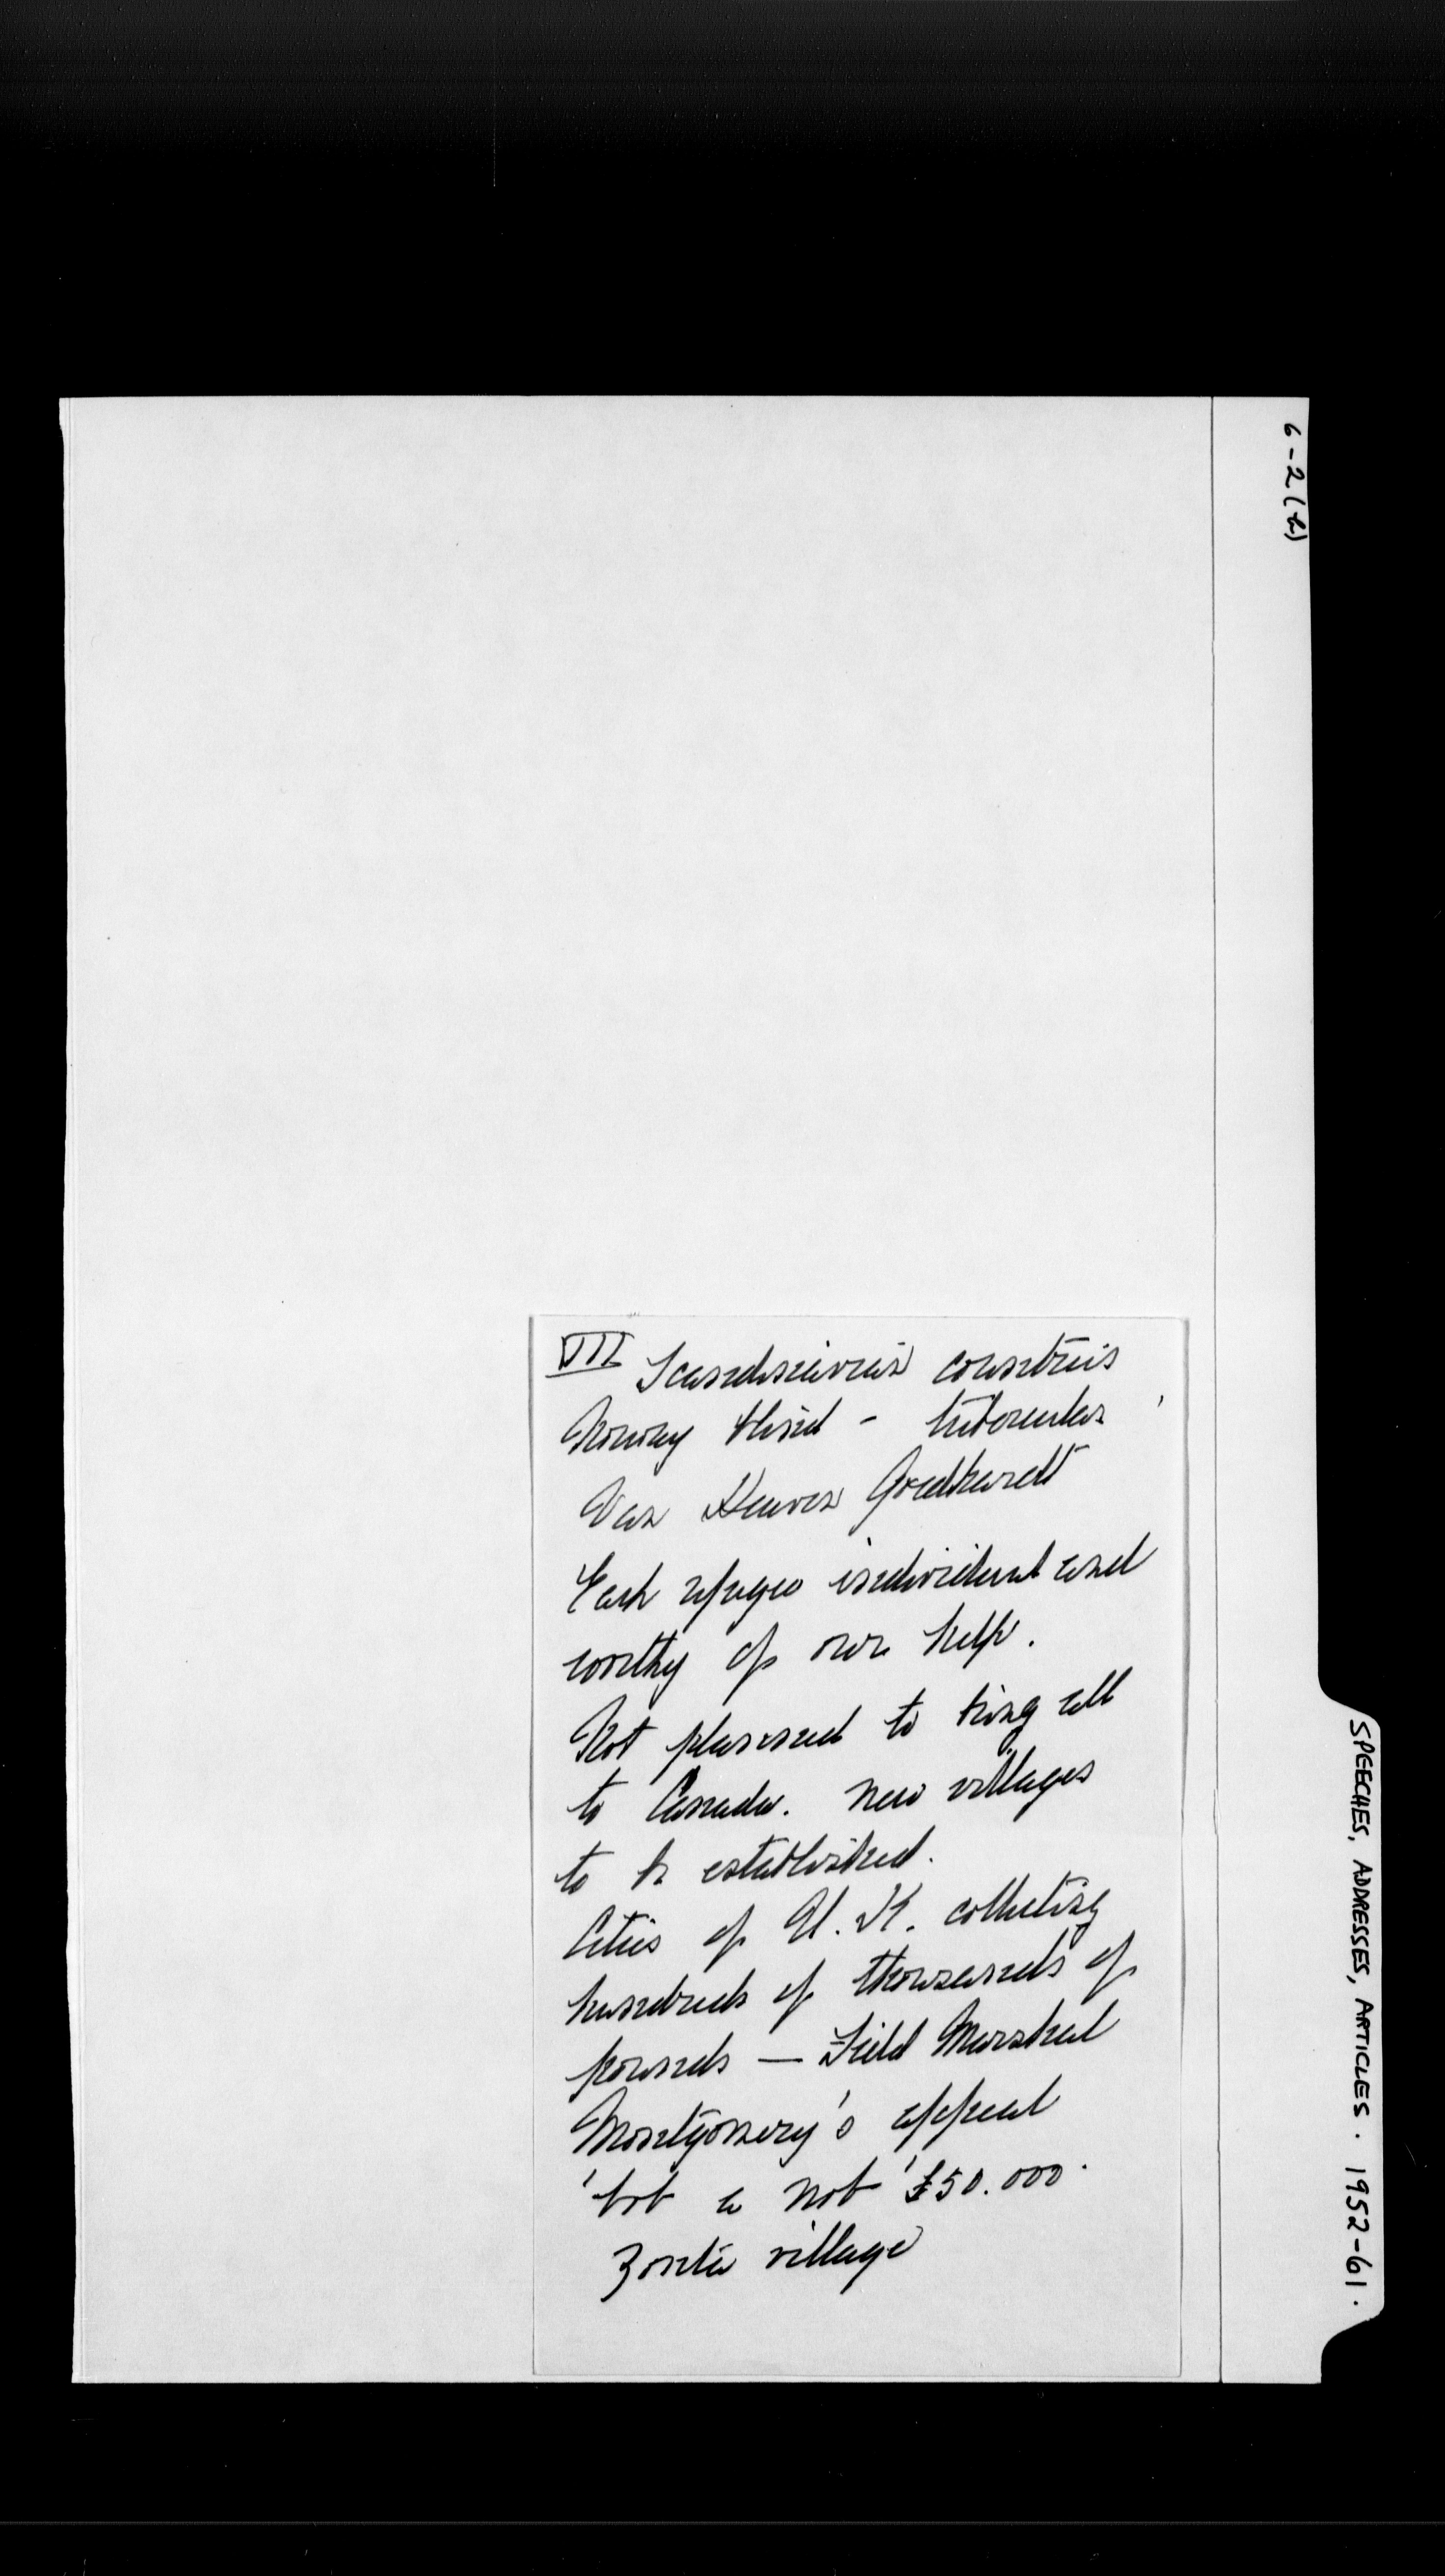 6-2(h)
SPEECHES, ADDRESSES, ARTICLES. 1952-61.
VII Scandinavian countries
Norway blind - tubercular
Van Heuven Goedhardt
Each refugee individual and
worthy of our help.
Not planned to bring all
to Canada. New villages
to be established.
Cities of U.K. collecting
hundreds of thousands of
pounds — Field Marshal
Montgomery's appeal
not £50.000.
Zonta village